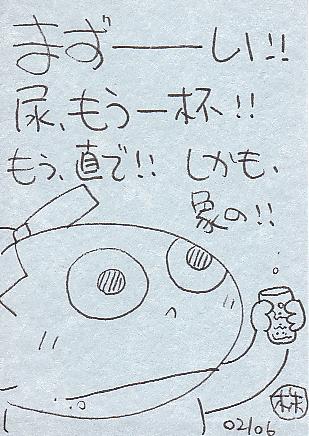 まずーーしい!!
尿、もう一杯!!
もう、直で!! しかも、
象の!!
林
02/06